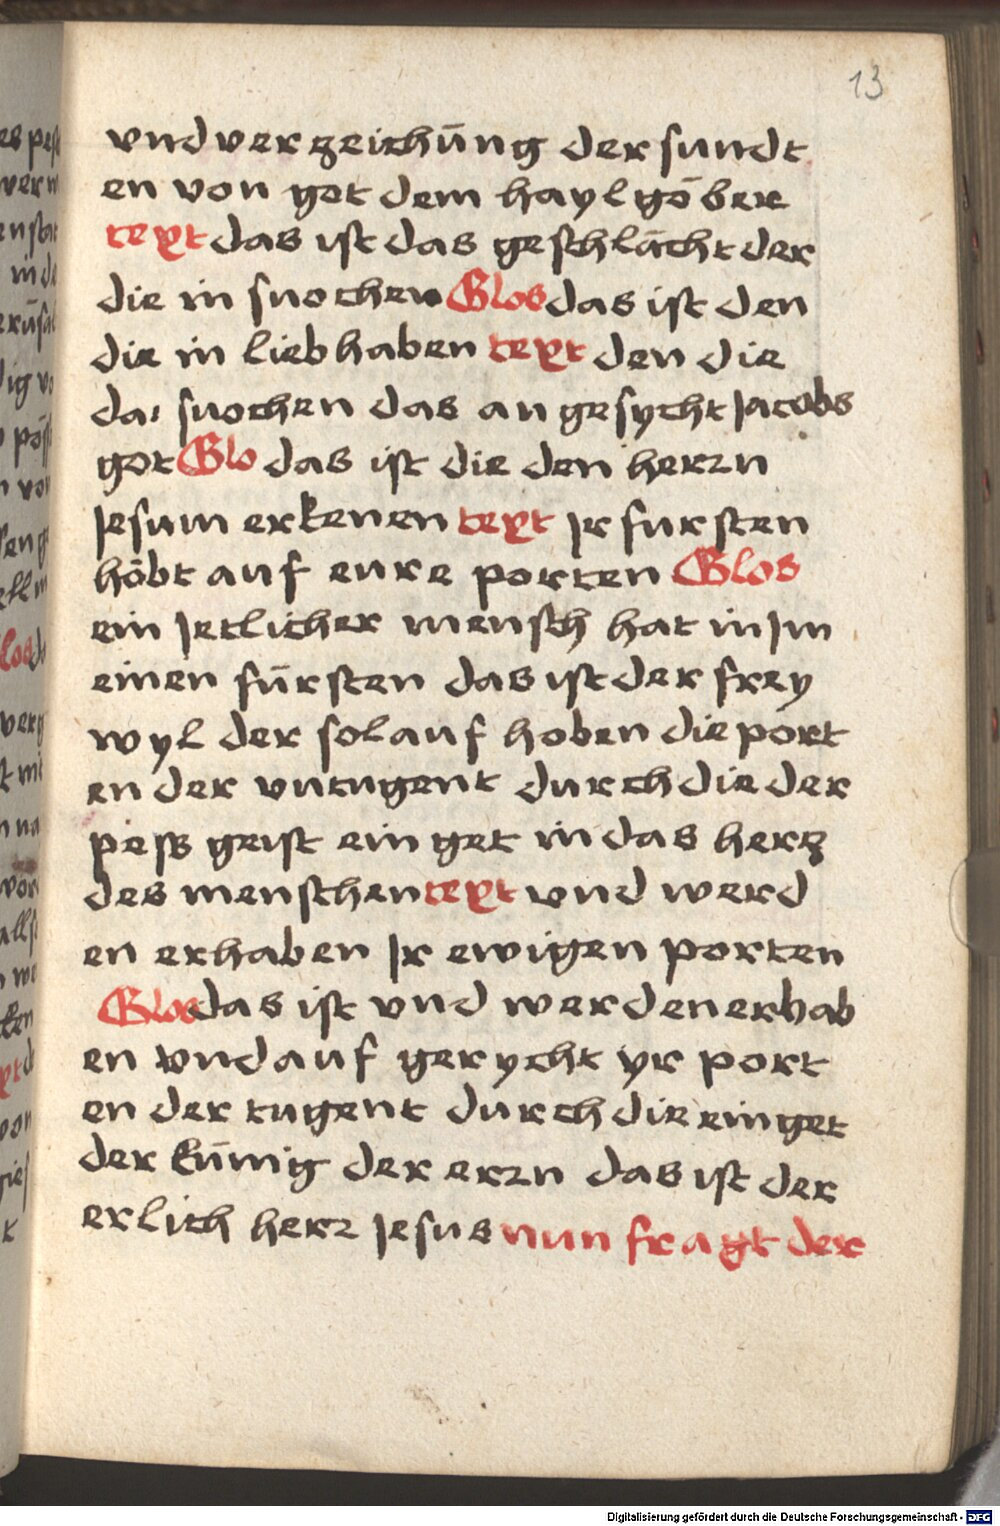 13
vnd verzeichūng der sundt
en von got dem hayl gōber
text das ist das geschlācht der
die in suochen Glos das ist den
die in lieb haben text den die
da suochen das angesycht Jacobs
got Glo das ist die den herzn
Jesum erkenen text Jr fursten
hōbt auf eure porten Glos
ein Jetlicher mensch hat in Jm
einen fūrsten das ist der frey
wyl der sol auf hoben die port
en der vntugent durch die der
pess geist ein get in das herz
des menschen text vnd werd
en erhaben Jr ewigen porten
Glos das ist vnd werden erhab
en vnd auf gerycht yr port
en der tugent durch die ein get
der kūnig der erzn das ist der
erlich herz Jesus nun fragt der
Digitalisierung gefördert durch die Deutsche Forschungsgemeinschaft - DFG